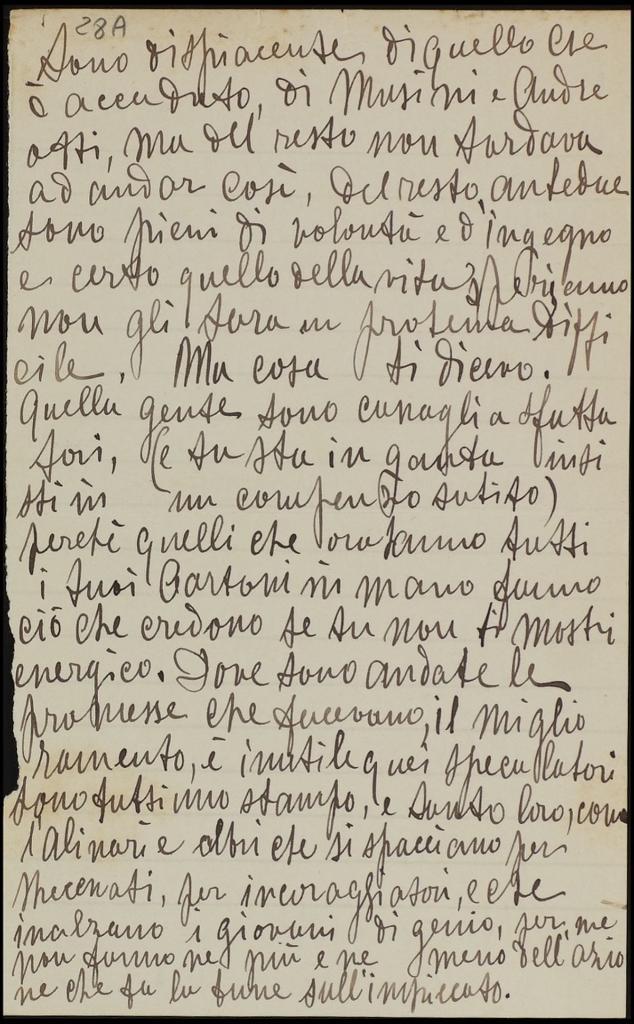 28A
Sono dispiacente di quello che
è accaduto, di Musini e Andre
otti, ma del resto non tardava
ad andar così, del resto, antedue
sono pieni di volontà e d'ingegno
e certo quello della vita
non gli sara un problema diffi
cile. Ma cosa ti dicevo.
Quella gente sono canaglia sfutta
tori, (e tu sta in gamba insi
sti in un compenso subito)
perchè quelli che ora hanno tutti
i tuoi Cartoni in mano fanno
ciò che credono se tu non ti mostri
energico. Dove sono andate le
promesse che facevano, il miglio
ramento, è inutile quei speculatori
sono tutti uno stampo, e tanto loro, come
l'Alinari e altri che si spacciano per
Mecenati, per incoraggiatori, e che
inalzano i giovani di genio, per me
non fanno ne più e ne meno dell'azio
ne che fa la fune sull'impiccato.